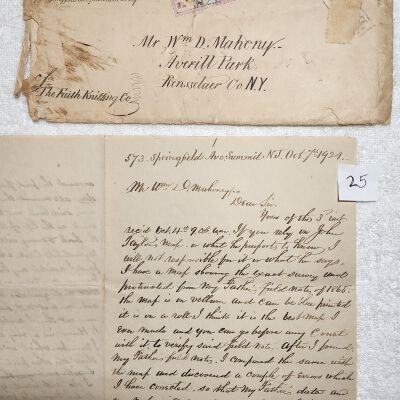 Mr Wm D. Mahony.
Averill Park.
Rensselaer Co N.Y.
c/o
The Faith Knitting Co
25
1
573 Springfield Ave Summit N.J. Oct 7th 1921.
Mr. Wm D. Mahoney,
Dear Sir.
Yours of this 3d inst
rec'd Oct. 4th 9 oc am. If you rely on John
Taylors Map or what he purports to know, I
will not responsible for it or what he says.
I have a map showing the exact survey and
protracted from My Father field notes of 1865.
the map is on vellum and can be blue printed
it is on a roll & I think it is the best map I
Ever made and you can go before any Court
with it to verify said field notes. After I found
My Fathers field notes. I compared the same with
the map and discovered a couple of Errors which
I have corrected. so that My Father's dates and